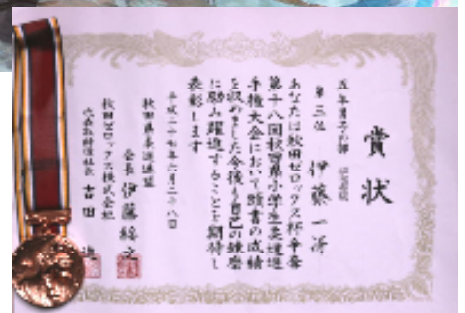 賞状
五年男子の部
第三位 伊藤一
あなたは秋田ゼロックス杯争奪
第十八回秋田県小学生柔道選
手権大会において頭書の成績
を収めました今後も自己の錬磨
に励み躍進することを期待し
表彰します
平成二十七年六月二十八日
秋田県柔道連盟
会長 伊藤
秋田ゼロックス株式会社
代表取締役社長 吉田